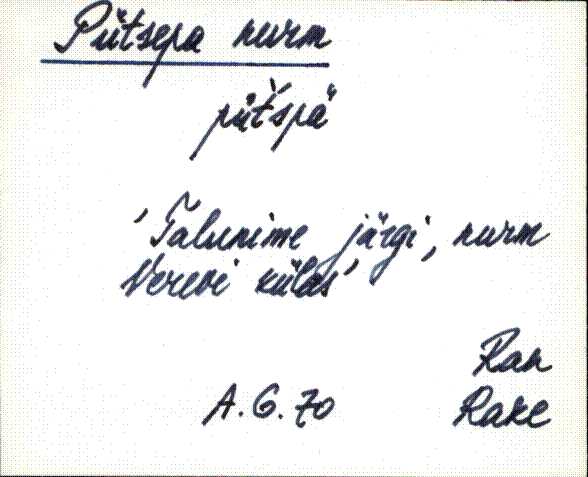 Pütsepa nurm
püt̀spä
'Talunime järgi, nurm
Verevi külas'
Ran
A. G. 70 Rake